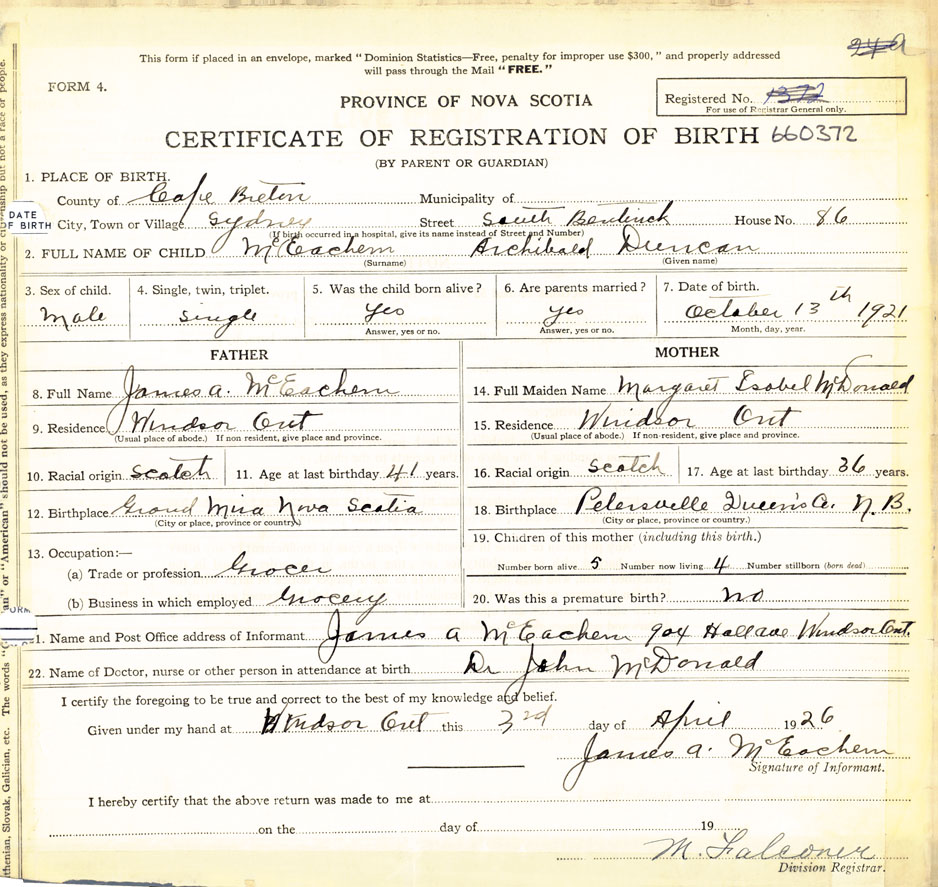 24a
This form if placed in an envelope, marked "Dominion Statistics—Free, penalty for improper use $300," and properly addressed
will pass through the Mail "FREE."
FORM 4.
PROVINCE OF NOVA SCOTIA
Registered No. 1372
For use of Registrar General only.
CERTIFICATE OF REGISTRATION OF BIRTH 660372
(BY PARENT OR GUARDIAN)
1. PLACE OF BIRTH.
County of Cape Breton Municipality of
DATE
OF BIRTH
City, Town or Village Sydney Street South Bentinck House No. 86
(If birth occurred in a hospital, give its name instead of Street and Number)
2. FULL NAME OF CHILD McEachern Archibald Duncan
(Surname) (Given name)
3. Sex of child. 4. Single, twin, triplet. 5. Was the child born alive? 6. Are parents married? 7. Date of birth.
Male Single Yes Yes October 13th 1921
Answer, yes or no. Answer, yes or no. Month, day, year.
FATHER MOTHER
8. Full Name James A. McEachern 14. Full Maiden Name Margaret Isabel McDonald
9. Residence Windsor Ont 15. Residence Windsor Ont
(Usual place of abode.) If non resident, give place and province. (Usual place of abode.) If non-resident, give place and province.
10. Racial origin Scotch 11. Age at last birthday 41 years. 16. Racial origin Scotch 17. Age at last birthday 36 years.
12. Birthplace Grand Mira Nova Scotia 18. Birthplace Petersville Queen's Co. N.B.
(City or place, province or country) (City or place, province or country.)
13. Occupation:— 19. Children of this mother (including this birth.)
(a) Trade or profession Grocer Number born alive 5 Number now living 4 Number stillborn (born dead)
(b) Business in which employed Grocery 20. Was this a premature birth? no
21. Name and Post Office address of Informant James A McEachern 904 Hall ave Windsor Ont.
22. Name of Doctor, nurse or other person in attendance at birth Dr John McDonald
I certify the foregoing to be true and correct to the best of my knowledge and belief.
Given under my hand at Windsor Ont this 3rd day of April 1926
James A. McEachern
Signature of Informant.
I hereby certify that the above return was made to me at
on the day of 19
M. Falconer
Division Registrar.
thenian, Slovak, Galician, etc. The words "
an" or "American" should not be used, as they express nationality or citizenship but not a race or people.